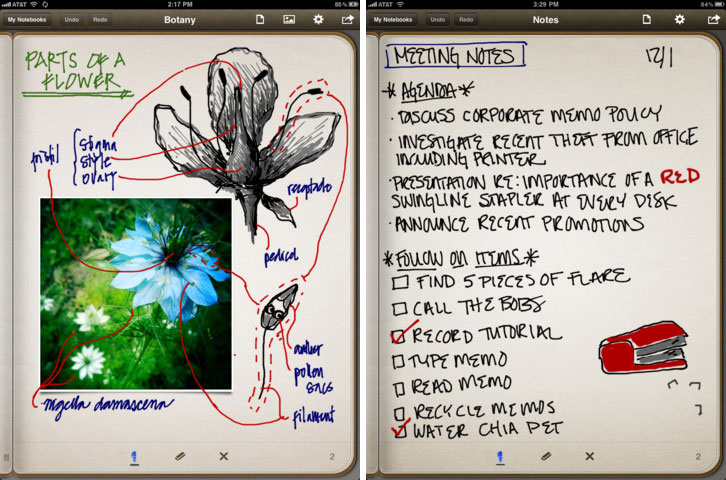 AT&T
2:17 PM
95%
My Notebooks
Undo
Redo
Botany
PARTS OF A
FLOWER
pistil
stigma
style
ovary
receptacle
pedicel
anther
pollen
sacs
filament
nigella damascena
2
AT&T
3:29 PM
84%
My Notebooks
Undo
Redo
Notes
MEETING NOTES
12/1
*AGENDA*
· DISCUSS CORPORATE MEMO POLICY
· INVESTIGATE RECENT THEFT FROM OFFICE
INCLUDING PRINTER
· PRESENTATION RE: IMPORTANCE OF A RED
SWINGLINE STAPLER AT EVERY DESK
· ANNOUNCE RECENT PROMOTIONS
*FOLLOW ON ITEMS*
FIND 5 PIECES OF FLARE
CALL THE BOBS
RECORD TUTORIAL
TYPE MEMO
READ MEMO
RECYCLE MEMOS
WATER CHIA PET
2